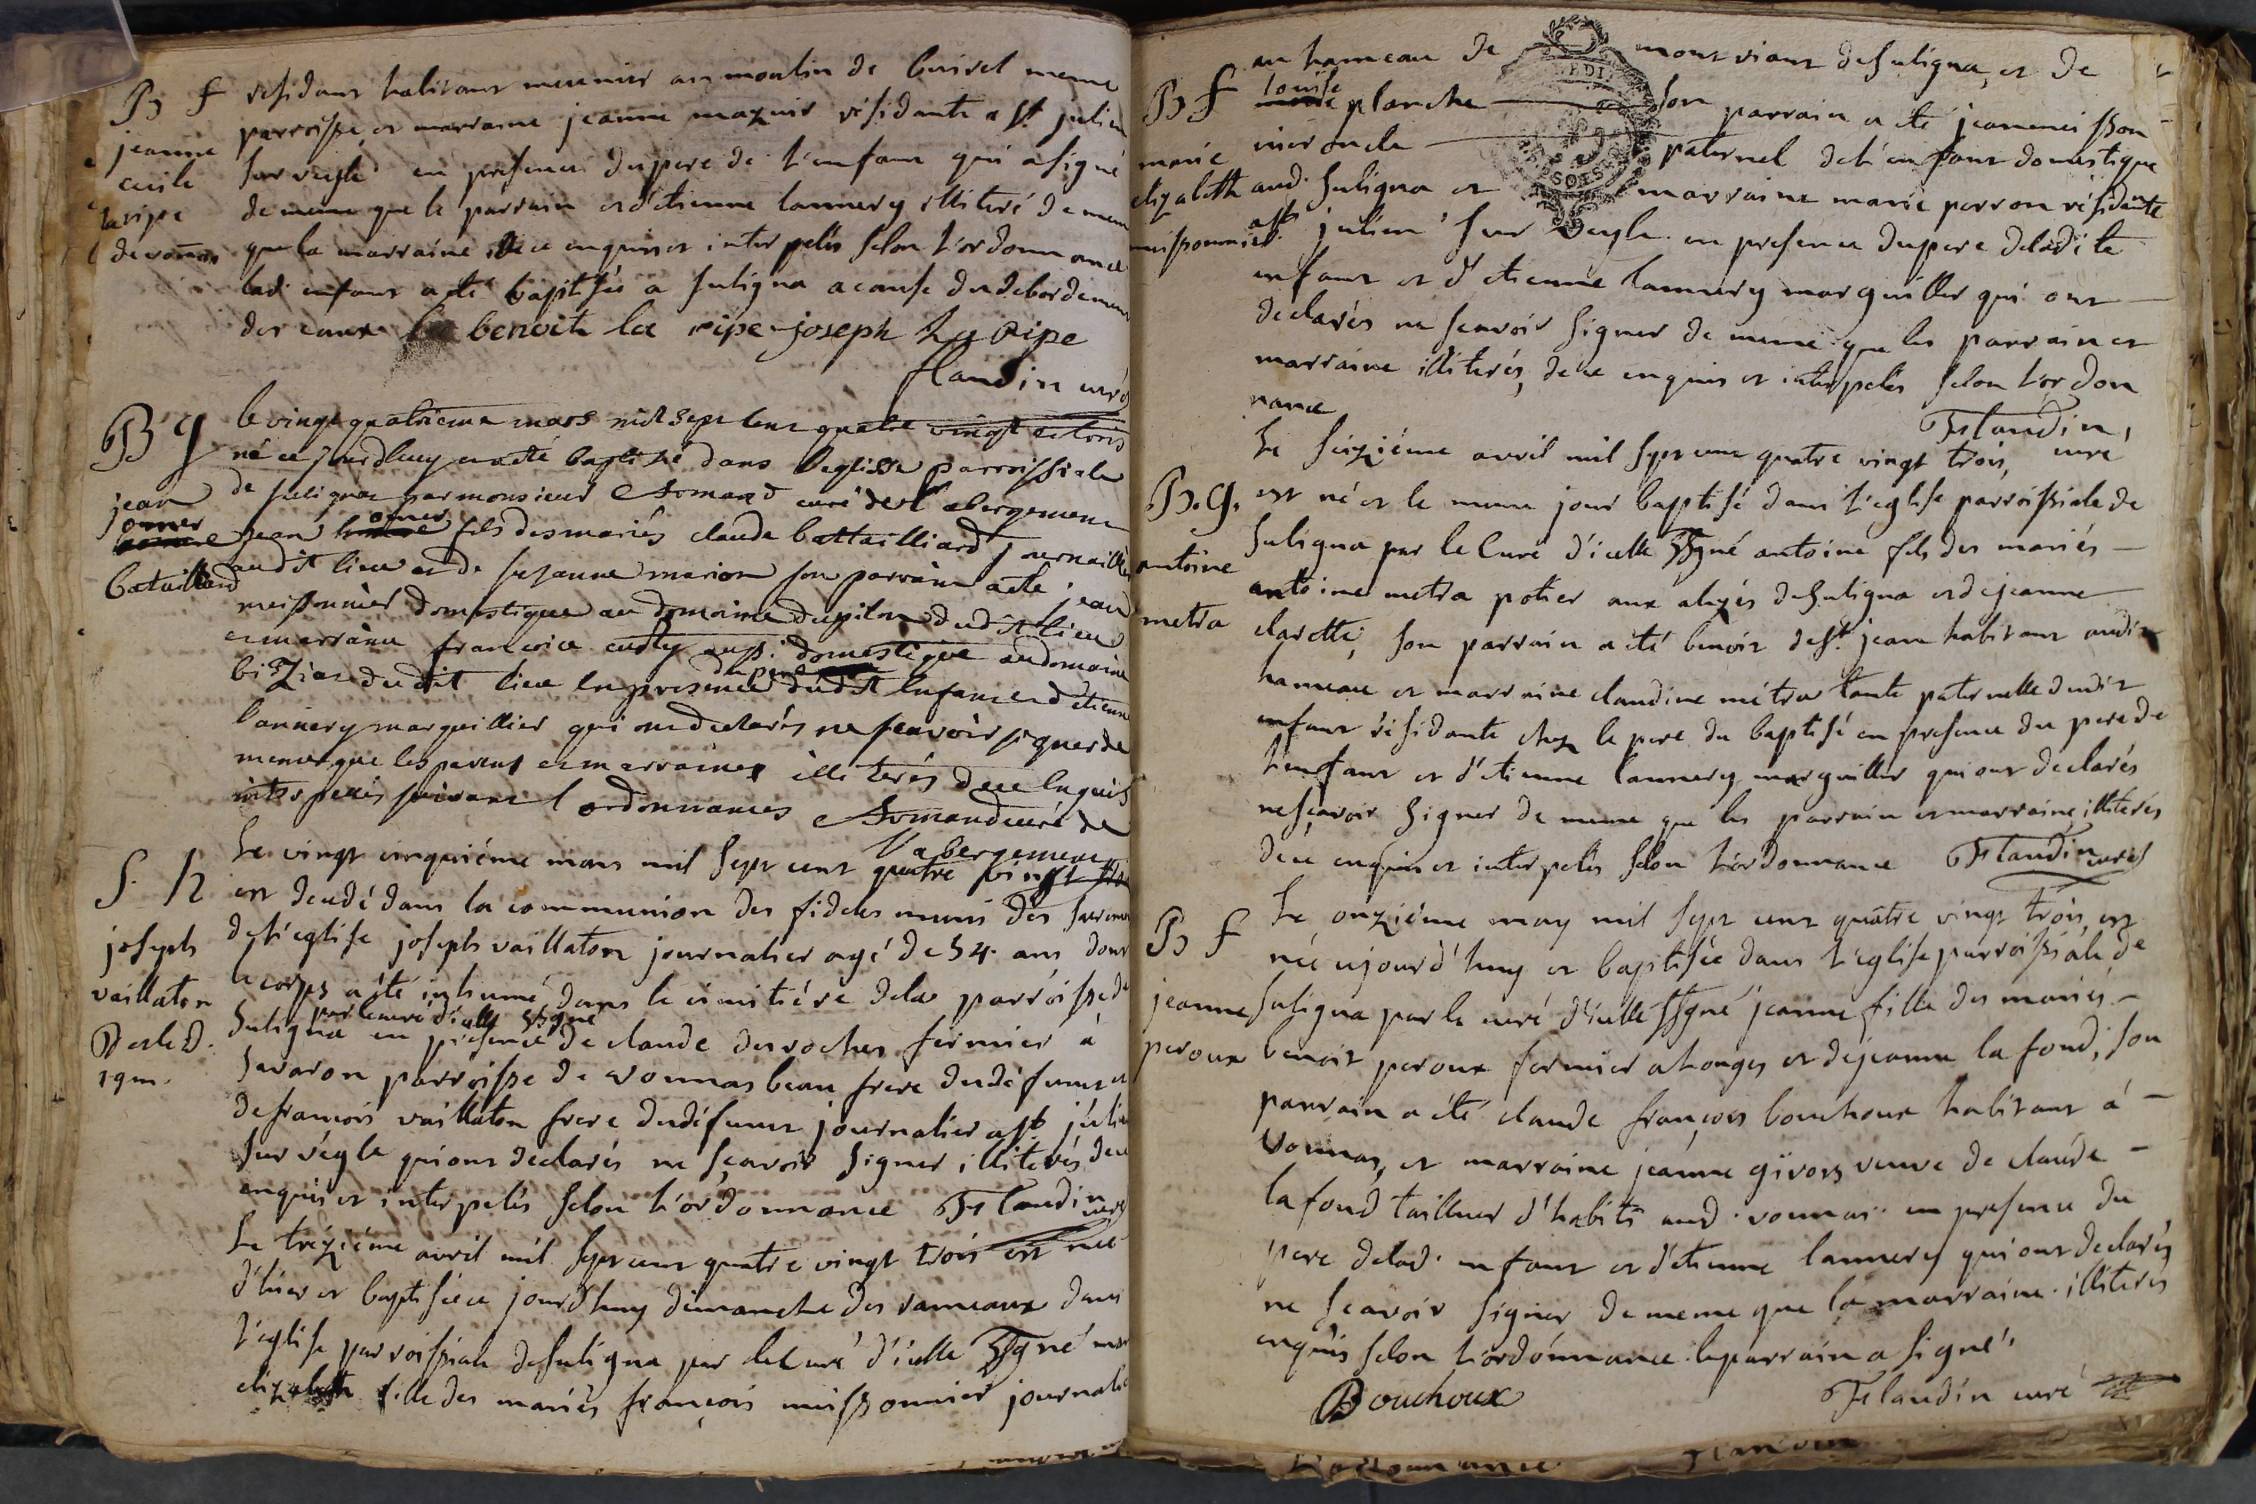 B f
jeanne
cecile
laripe
de vonnas
residant habitant meunier au moulin de buirel meme
parroisse, et marraine jeanne mazuir résidante a st. julien
sur veyle en presence du pere de l'enfant qui a signé
de meme que le parrain et d'etienne lannery illiteré de meme
que la marraine de ce enquis et interpelés selon l'ordonnance
lad. enfant a été baptisée a suligna a cause du debordement
des eaux benoit la ripe joseph La Ripe
flandin curé
B g
jean
omer
bataillard
le vingt quatrieme mars mil sept cent quatre vingt et trois
né ce jourdhuy et a été baptisé dans l'eglisse parroissiale
de suligna par monsieur curé de l'abergement
jean omer fils des mariés claude battailliard journaillier
audit lieu et de suzanne marion son parrain a été jean
meissonnier domestique au domaine du pilon dudit lieu
et marraine francoise custy aussi domestique au domaine
dudit lieu en presence du pere dudit enfant et d'etienne
lannery marguillier qui ont declarés ne scavoir signer de
meme que les parent et marraines illiterés de ce enquis
interpelés suivant l ordonnances curé de
l'abergement
S. h
joseph
vaillaton
Le vingt cinquiéme mars mil sept cent quatre vingt trois
est decedé dans la communion des fideles muni des sacremens
de l'eglise joseph vaillaton journalier agé de 54. ans dont
le corps a été inhumé dans le cimitiére de la parroisse de
par le curé d'icelle ssigné
suligna en presence de claude desroches fermier à
savaron parroisse de vonnas beau frere du défunt et
de françois vaillaton frere du défunt journalier a st. julien
sur véyle qui ont declarés ne sçavoir signer illiterés de ce
enquis et interpelés selon l'ordonnance Flandin curé
Le tréziéme avril mil sept cent quatre vingt trois est née
d'hier et baptisée ce jourdhuy dimanche des rameaux dans
l'eglise parroissiale de suligna par le Curé d'icelle ssigné marie
elizabeth fille des mariés françois meissonnier journalier
B f
marie
elizabeth
meissonnier
au hameau de mont viant de suligna, et de
louise
planche son parrain a eté jean meisson
nier oncle paternel de l'enfant domestique
aud. suligna et marraine marie perron résidante
a st. julien sur veyle en presence du pere de ladite
enfant et d'etienne lannery marguillier qui ont
declarés ne scavoir signer de meme que les parrain et
marraine illiterés, de ce enquis et interpelés selon l'ordon
nance
Flandin,
curé
B. g.
antoine
metra
Le seiziéme avril mil sept cent quatre vingt trois,
est né et le meme jour baptisé dans l'eglise parroissiale de
suligna par le Curé d'icelle ssigné antoine fils des mariés
antoine metra potier aux de suligna et de jeanne
clarette, son parrain a été benoit de st. jean habitant audit
hameau et marraine claudine métra tante paternelle dudit
enfant résidante chez le pere du baptisé en presence du pere de
l'enfant et d'etienne lannery marguiller qui ont declarés
ne sçavoir signer de meme que les parrain et marraine illiterés
de ce enquis et interpelés selon l'ordonnance Flandin curé
B f
jeanne
peroux
Le onziéme may mil sept cent quatre vingt trois, est
née cejourd'huy et baptisée dans l'eglise parroissiale de
suligna par le curé d'icelle ssigné jeanne fille des mariés
benoit peroux fermier a longes et de jeanne la fond, son
parrain a été claude françois bouchoux habitant á
vonnas, et marraine jeanne givors veuve de claude
la fond tailleur d'habits aud. vonnas en presence du
pere de lad. enfant et d'etienne lannery qui ont declarés
ne sçavoir signer de meme que la marraine illiterés
enquis selon l'ordonnance le parrain a signé
Bouchoux
Flandin curé